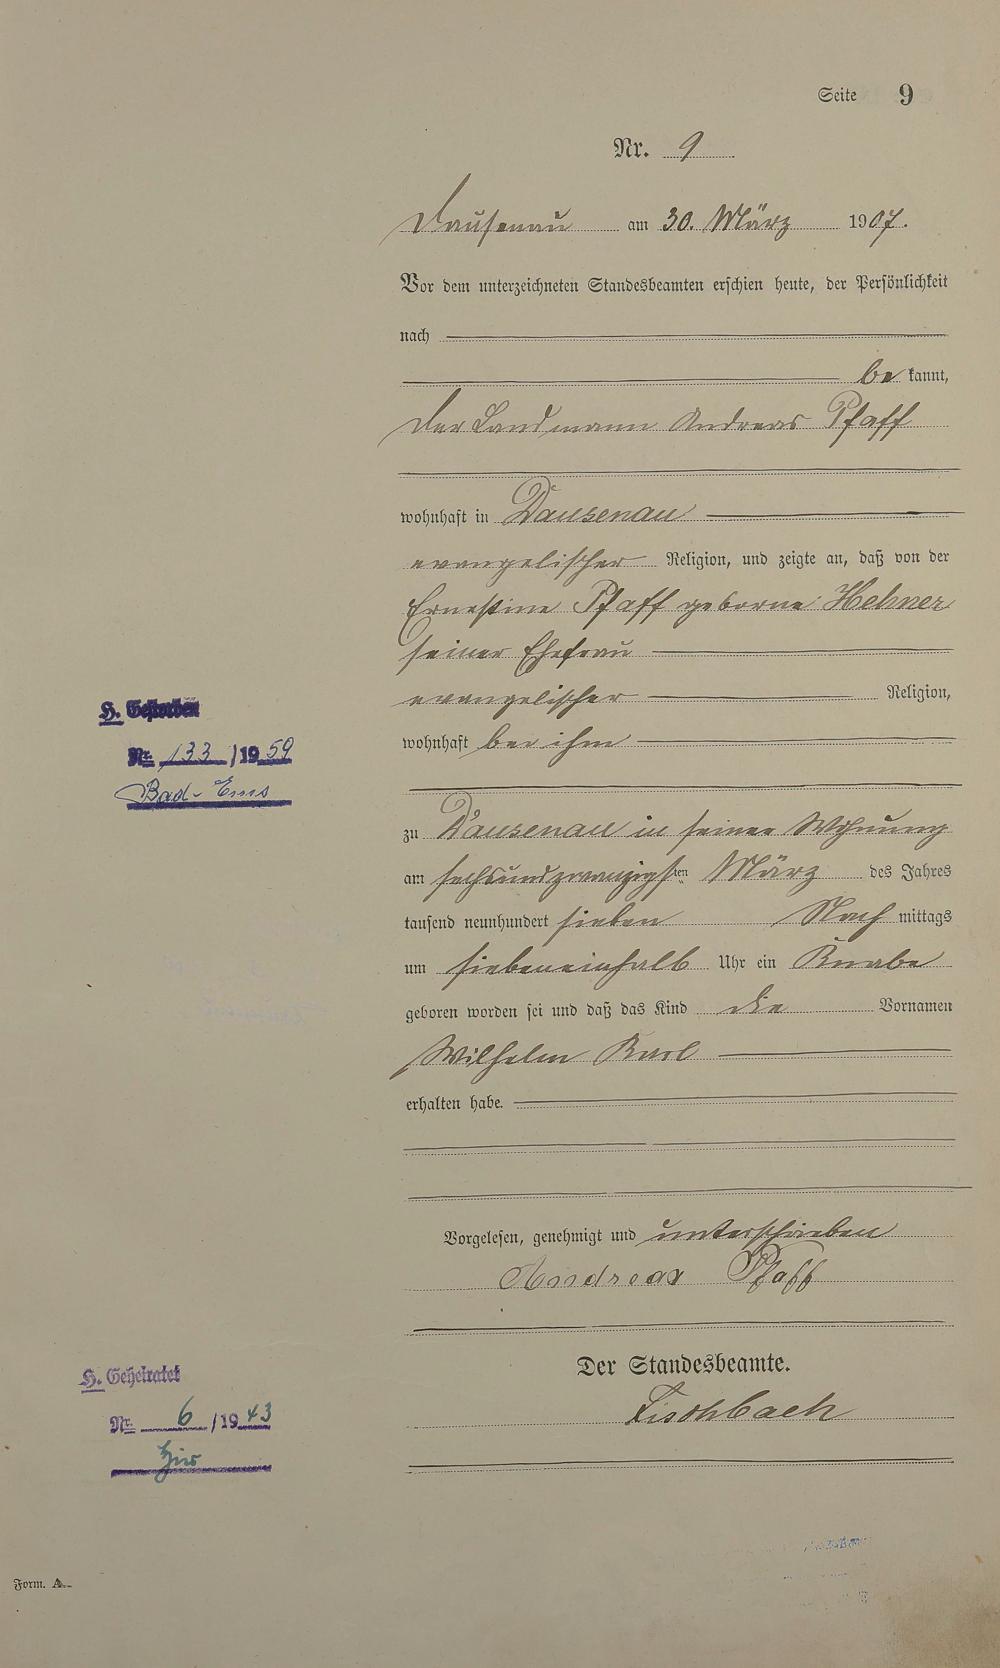 Seite 9
Nr. 9
Dausenau am 30. März 1907.
Vor dem unterzeichneten Standesbeamten erschien heute, der Persönlichkeit
nach
be kannt,
der Landmann Andreas Pfaff
wohnhaft in Dausenau
evangelischer Religion, und zeigte an, daß von der
Ernestine Pfaff geborne Hehner
seiner Ehefrau
evangelischer Religion,
wohnhaft bei ihm
zu Dausenau in seiner Wohnung
am sechsundzwanzigsten März des Jahres
tausend neunhundert sieben Nach mittags
um siebeneinhalb Uhr ein Knabe
geboren worden sei und daß das Kind die Vornamen
Wilhelm Karl
erhalten habe.
Vorgelesen, genehmigt und unterschrieben
Andreas Pfaff
Der Standesbeamte.
Fischbach
H. Gestorben
Nr. 133 /19 59
Bad-Ems
H. Geheiratet
Nr. 6 /19 43
hier
Form. A.